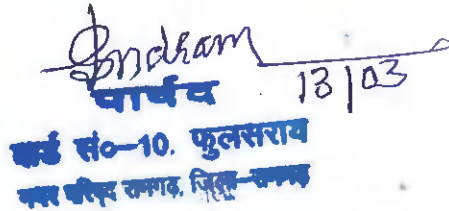 Indram
13/03
पार्षद
वार्ड सं०-10. फुलसराय
नगर परिषद रामगढ़, जिला-रामगढ़